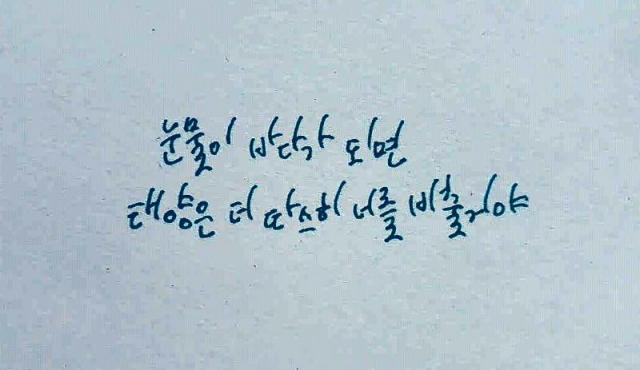 눈물이 바다가 되면
태양은 더 따스히 너를 비출거야